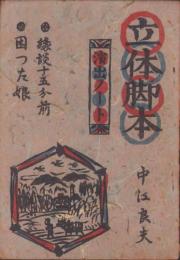 立体脚本
演出ノート
縁談十五分前
困つた娘
中江良夫